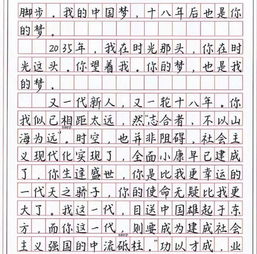 脚步。我的中国梦，十八年后也是你
的梦。
2035年，我在时光那头，你在时
光这头。你望着我。你的梦，也是我
的梦。
又一代新人，又一轮十八年。你
我似已相距太远，然志合者，不以山
海为远。时空，也并非阻碍，社会主
义现代化实现了，全面小康早已建成
了，你生逢盛世，你是比我更幸运的
一代天之骄子，你的使命无疑比我更
大了。我这一代，目送中国雄起于东
方，而你这一代，则要成为建成社会
主义强国的中流砥柱。功以才成，业